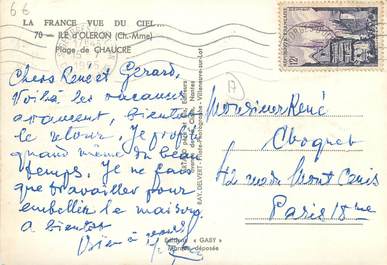 66
LA FRANCE VUE DU CIEL...
70 - ILE d'OLERON (Ch.-Mme)
Plage de CHAUCRE
Chers René et Gerard,
Voilà les vacances
avancent, bientôt
le retour, Je profite
quand même du beau
temps, Je ne fais
que travailler pour
embellir la maison
a bientôt
Bien à vous
Editions « GABY »
Marque déposée
RAY. DELVERT - Pilote-Photographe - Villeneuve-sur-Lot
Nantes
12F
Monsieur René
Choquet
42 rue du Mont Cenis
Paris 18me